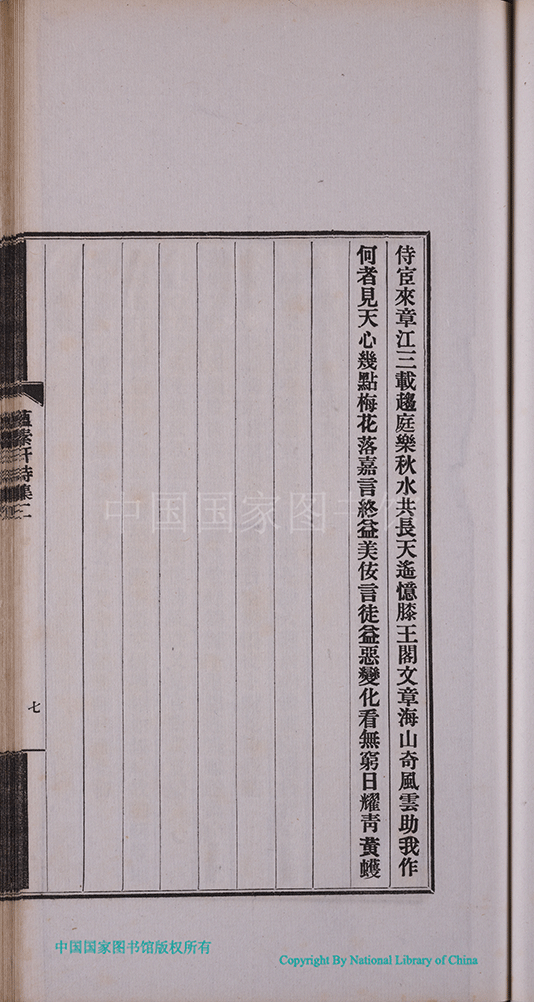 侍宦來章江三載趨庭樂秋水共長天遙憶滕王閣文章海山奇風雲助我作
何者見天心幾點梅花落嘉言終益美佞言徒益惡變化看無窮日耀靑黃蠖
詩集二
七
中国国家图书
中国国家图书馆版权所有
Copyright By National Library of China